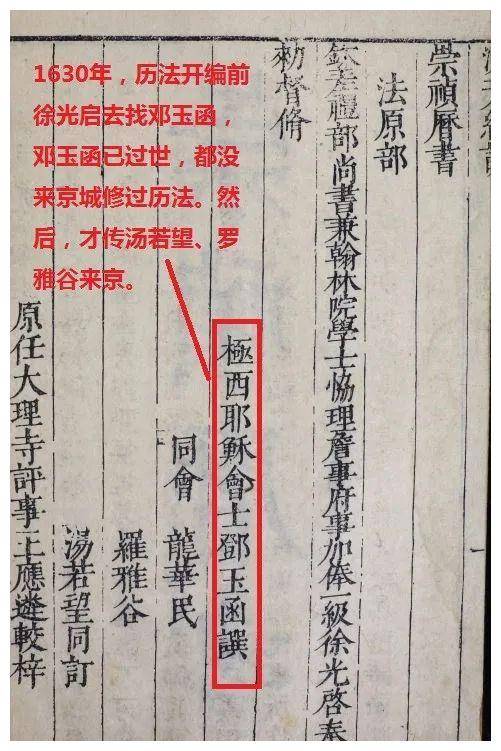 1630年，历法开编前
徐光启去找邓玉函，
邓玉函已过世，都没
来京城修过历法。然
后，才传汤若望、罗
雅谷来京。
崇禎曆書
法原部
欽差禮部尚書兼翰林院學士協理詹事府事加俸一級徐光啓奉
勑督脩
極西耶穌會士鄧玉函譔
同會 龍華民
羅雅谷
湯若望同訂
原任大理寺評事王應遴較梓